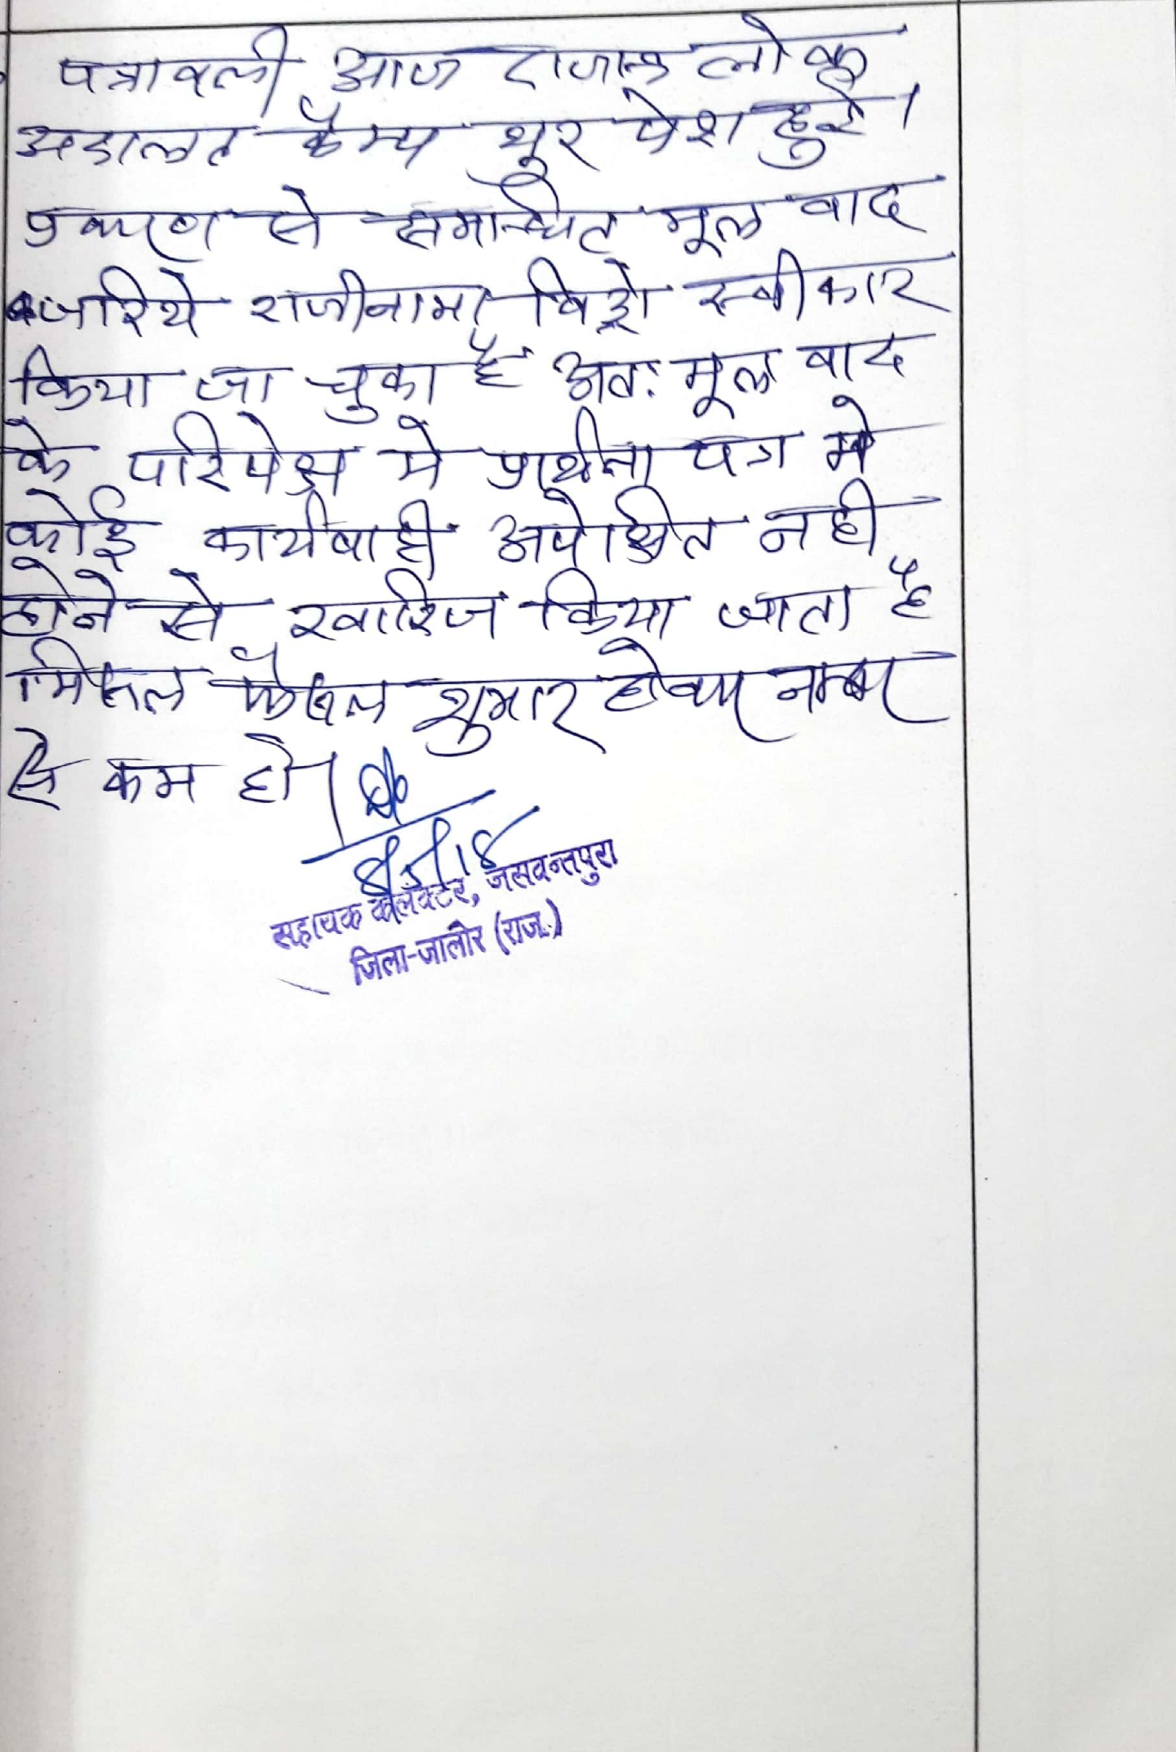 पत्रावली आज राजस्व लोक
अदालत कैम्प थूर पेश हुई।
प्रकरण से सम्बन्धित मूल वाद
जरिये राजीनामा विड्रो स्वीकार
किया जा चुका है अतः मूल वाद
के परिपेक्ष मे प्रार्थना पत्र मे
कोई कार्यवाही अपेक्षित नही
होने से खारिज किया जाता है
मिसल फैसल शुमार होकर नम्बर
से कम हो।
सहायक कलेक्टर, जसवन्तपुरा
जिला-जालोर (राज.)